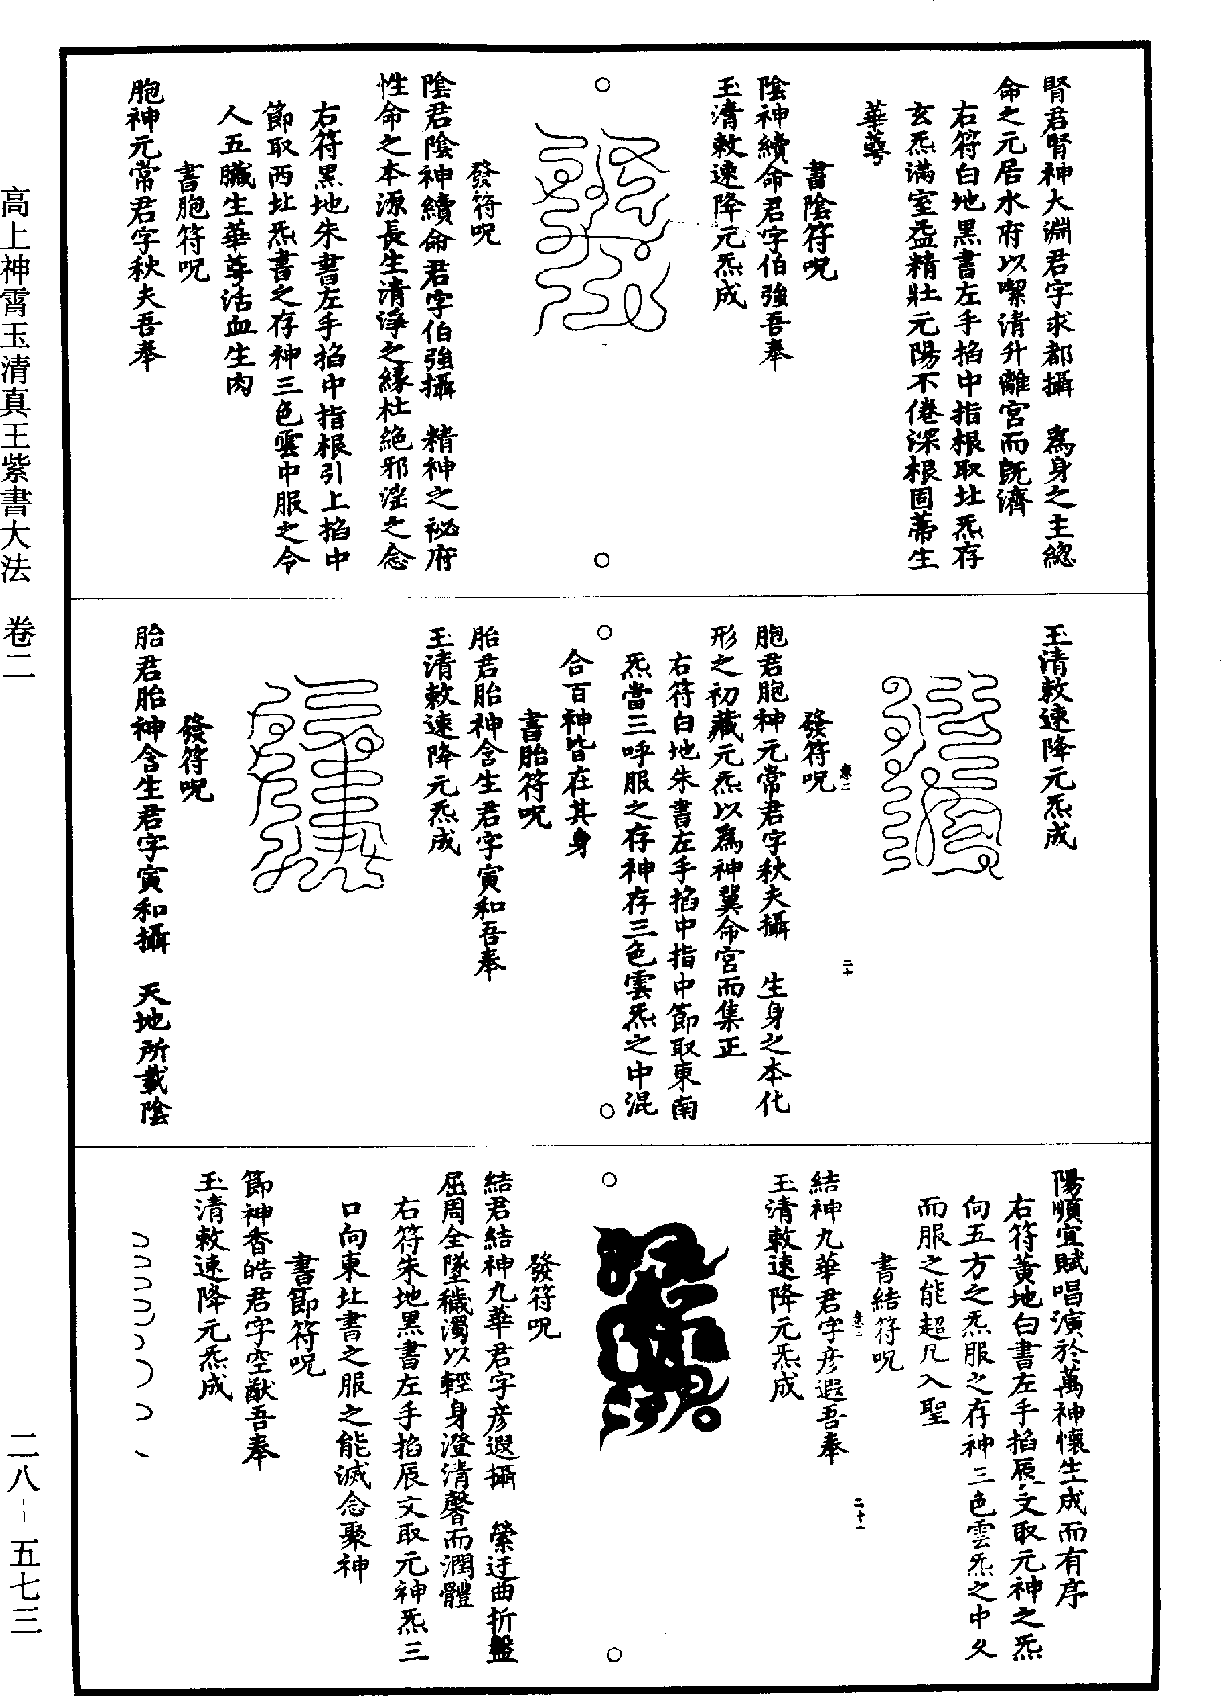 腎君腎神大淵君字求都攝　為身之主總
命之元居水府以潔清升離宮而既濟
右符白地黑書左手掐中指根取北炁存
玄炁滿室益精壯元陽不倦深根固蒂生
華蕚
書陰符呪
陰神續命君字伯強吾奉
玉清敕速降元炁成
發符呪
陰君陰神續命君字伯強攝　精神之祕府
性命之本源長生清淨之緣杜絕邪淫之念
右符黑地朱書左手掐中指根引上掐中
節取西北炁書之存神三色雲中服之令
人五臟生華蕚活血生肉
書胞符呪
胞神元常君字秋夫吾奉
玉清敕速降元炁成
卷二
二十
發符呪
胞君胞神元常君字秋夫攝　生身之本化
形之初藏元炁以為神冀命宮而集正
右符白地朱書左手掐中指中節取東南
炁當三呼服之存神存三色雲炁之中混
合百神皆在其身
書胎符呪
胎君胎神含生君字寅和吾奉
玉清敕速降元炁成
發符呪
胎君胎神含生君字寅和攝　天地所載陰
陽順宜賦唱演於萬神懷生成而有序
右符黃地白書左手掐辰文取元神之炁
向五方之炁服之存神三色雲炁之中久
而服之能超凡入聖
書結符呪
卷二
二十一
結神九華君字彥遐吾奉
玉清敕速降元炁成
發符呪
結君結神九華君字彥遐攝　縈迂曲折盤
屈周全墜穢濁以輕身澄清馨而潤體
右符朱地黑書左手掐辰文取元神炁三
口向東北書之服之能滅念聚神
書節符呪
節神香皓君字空猷吾奉
玉清敕速降元炁成
高上神霄玉清真王紫書大法　卷二
二八－五七三